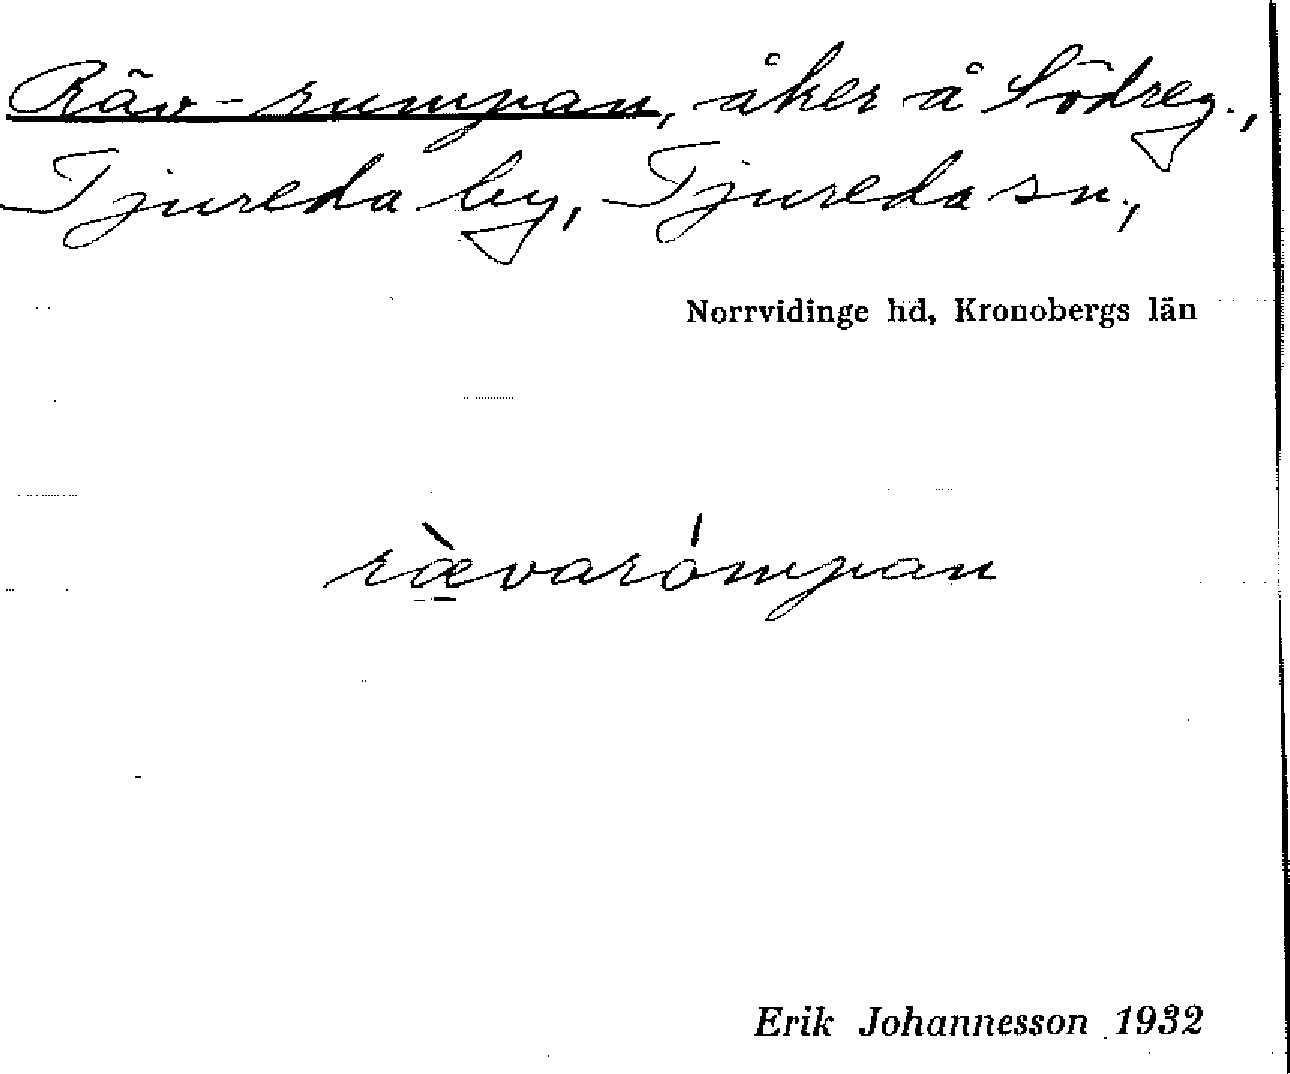 Räv-rumpan, åker å Södreg.,
Tjureda by, Tjureda sn.,
Norrvidinge hd, Kronobergs län
ræ̀varómpan
Erik Johannesson 1932